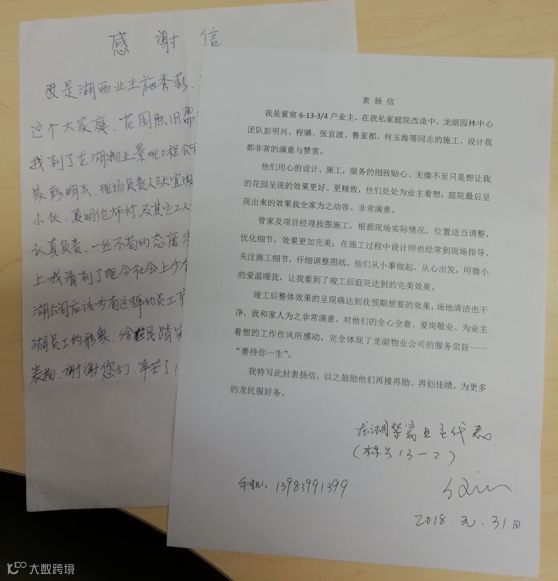 感谢信
我是湖西业主施香
这个大家庭、花园陈旧需
找到了龙湖物业景观工程
认真负责、一丝不苟的态度
上我看到了现今社会上少
湖公司应该多有这样的员工
湖员工的形象
谢谢您们、辛苦了
表扬信
我是紫宸 6-13-3/4 产业主，在我私家庭院改造中，龙湖园林中心
团队彭明兴、程璐、张宜波、鲁亚都、何玉海等同志的施工、设计我
都非常的满意与赞赏。
他们用心的设计、施工，服务的细致贴心、无微不至只是想让我
的花园呈现的效果更好、更精致，他们处处为业主着想，庭院最后呈
现出来的效果我全家为之动容、非常满意。
管家及项目经理按图施工，根据现场实际情况，位置适当调整，
优化细节，效果更加完美；在施工过程中设计师也经常到现场指导、
关注施工细节，仔细调整图纸，他们从小事做起，从心出发，用微小
的爱温暖我，让我看到了竣工后庭院达到的完美效果。
竣工后整体效果的呈现确达到我预期想要的效果，场地清洁也干
净，我和家人为之非常满意，对他们的全心全意、爱岗敬业、为业主
着想的工作作风所感动，完全体现了龙湖物业公司的服务宗旨——
“善待你一生”。
我特写此封表扬信，以之鼓励他们再接再励、再创佳绩，为更多
的龙民服好务。
龙湖紫宸业主代表
13-2)
手机: 13983991399
2018.元.31日
大数跨境